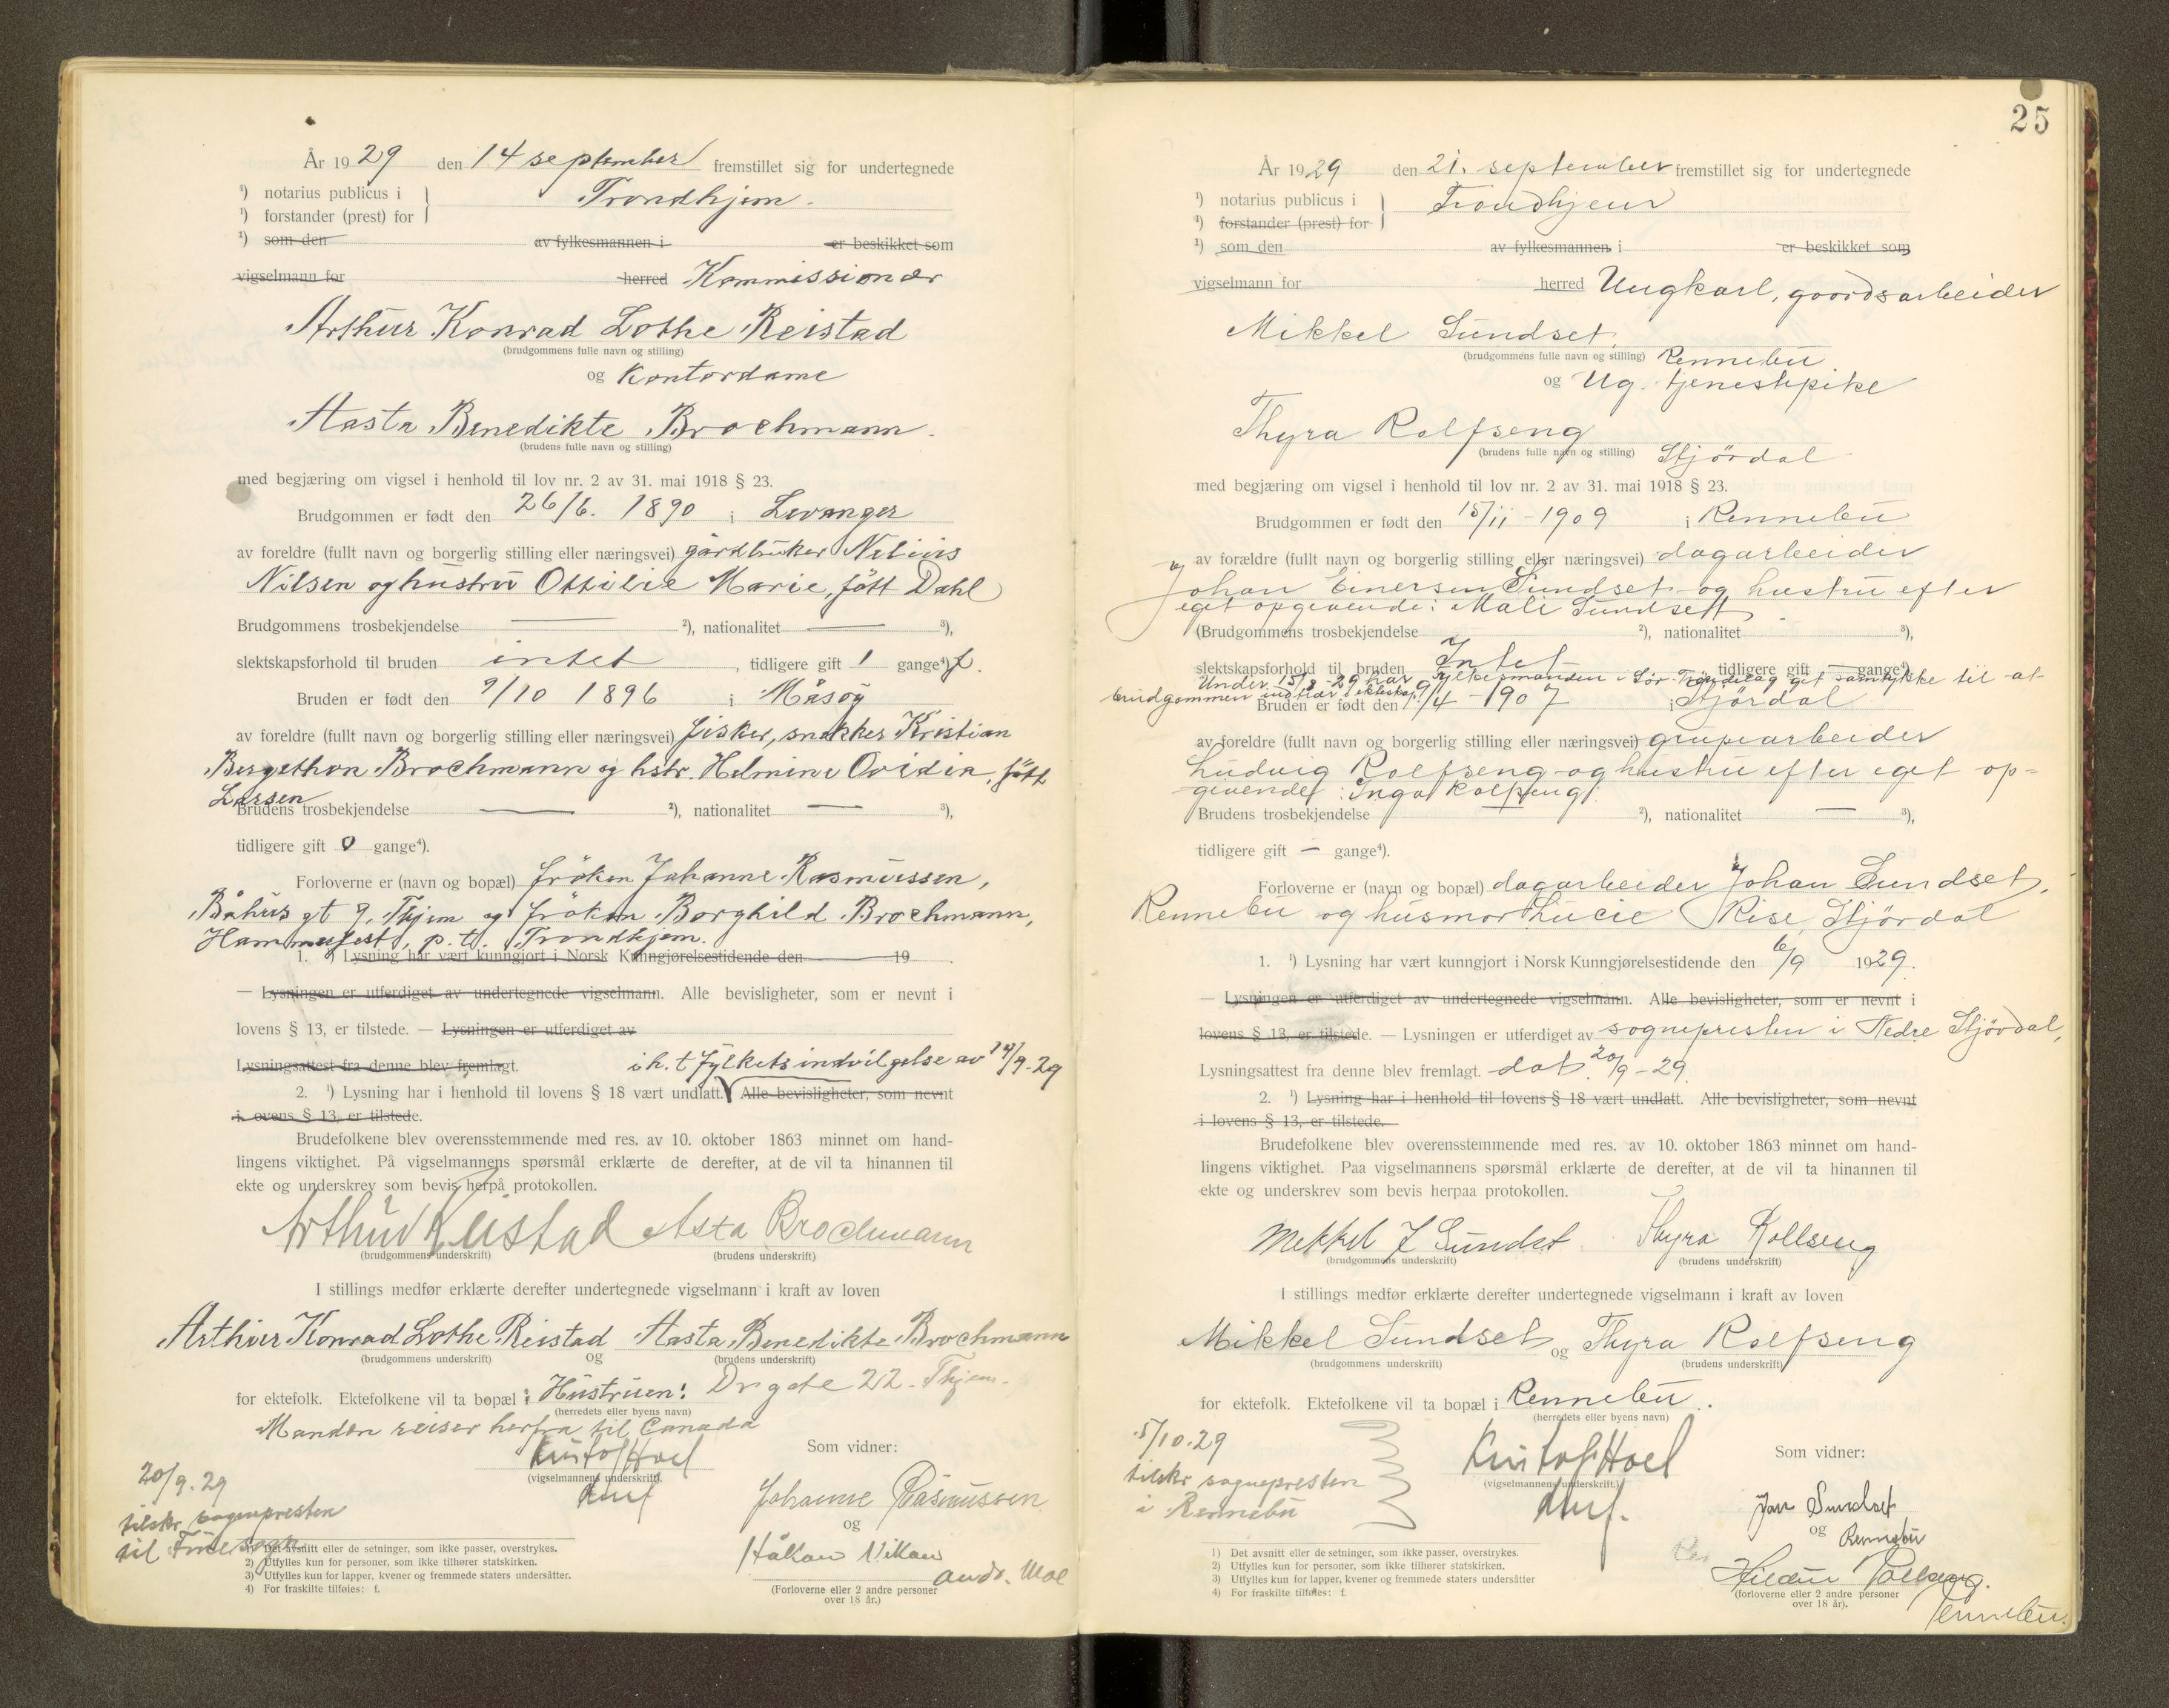 År 1929 den 14 september fremstillet sig for undertegnede
¹) notarius publicus i } Trondhjem.
¹) forstander (prest) for
¹) som den av fylkesmannen i er beskikket som
vigselmann for herred Kommissionær
Arthur Konrad Lothe Reistad
(brudgommens fulle navn og stilling)
og Kontordame
Aasta Benedikte Brochmann.
(brudens fulle navn og stilling)
med begjæring om vigsel i henhold til lov nr. 2 av 31. mai 1918 § 23.
Brudgommen er født den 26/6. 1890 i Levanger
av foreldre (fullt navn og borgerlig stilling eller næringsvei) gårdbruker Nilius
Nilsen og hustru Ottilie Marie, født Dahl
Brudgommens trosbekjendelse — ²), nationalitet — ³),
slektskapsforhold til bruden intet, tidligere gift 1 gange⁴) f.
Bruden er født den 9/10 1896 i Måsöy
av foreldre (fullt navn og borgerlig stilling eller næringsvei) fisker, snekker Kristian
Bergethon Brochmann og hstr. Helmine Ovidia, født
Larsen
Brudens trosbekjendelse — ²), nationalitet — ³),
tidligere gift 0 gange⁴).
Forloverne er (navn og bopæl) fröken Johanne Rasmussen,
Båhus gt 9. Thjem og fröken Borghild Brochmann,
Hammerfest, p.t. Trondhjem.
1. ¹) Lysning har vært kunngjort i Norsk Kunngjørelsestidende den 19 .
— Lysningen er utferdiget av undertegnede vigselmann. Alle bevisligheter, som er nevnt i
lovens § 13, er tilstede. — Lysningen er utferdiget av
Lysningsattest fra denne blev fremlagt. i h. t fylkets indvilgelse av 14/9-29
2. ¹) Lysning har i henhold til lovens § 18 vært undlatt. Alle bevisligheter, som nevnt
i lovens § 13, er tilstede.
Brudefolkene blev overensstemmende med res. av 10. oktober 1863 minnet om hand-
lingens viktighet. På vigselmannens spørsmål erklærte de derefter, at de vil ta hinannen til
ekte og underskrev som bevis herpå protokollen.
Arthur Reistad Asta Brochmann
(brudgommens underskrift) (brudens underskrift)
I stillings medfør erklærte derefter undertegnede vigselmann i kraft av loven
Arthur Konrad Lothe Reistad og Aasta Benedikte Brochmann
(brudgommens underskrift) (brudens underskrift)
for ektefolk. Ektefolkene vil ta bopæl i Hustruen: Drgate 22. Thjem.
(herredets eller byens navn)
Manden reiser herfra til Canada
Kristof Hoel
(vigselmannens underskrift).
Som vidner:
20/9.29
tilskr. sognepresten
Johanne Rasmussen
og
Håkan Vikan
(Forloverne eller 2 andre personer
over 18 år.)
1) Det avsnitt eller de setninger, som ikke passer, overstrykes.
2) Utfylles kun for personer, som ikke tilhører statskirken.
3) Utfylles kun for lapper, kvener og fremmede staters undersåtter.
4) For fraskilte tilføies: f.
25
År 1929 den 21. september fremstillet sig for undertegnede
¹) notarius publicus i } Trondhjem
¹) forstander (prest) for
¹) som den av fylkesmannen i er beskikket som
vigselmann for herred Ungkarl, gaardsarbeider
Mikkel Sundset,
(brudgommens fulle navn og stilling) Rennebu
og Ug. tjenestepike
Thyra Rolfseng
(brudens fulle navn og stilling) Stjördal
med begjæring om vigsel i henhold til lov nr. 2 av 31. mai 1918 § 23.
Brudgommen er født den 15/11-1909 i Rennebu
av forældre (fullt navn og borgerlig stilling eller næringsvei) dagarbeider
Johan Einersen Sundset og hustru efter
eget opgivende: Mali Sundsett
(Brudgommens trosbekjendelse ²), nationalitet ³),
slektskapsforhold til bruden Intet, tidligere gift — gange⁴)
Under 15/8-29 har fylkesmanden i Sör-Tröndelag git samtykke til at
brudgommen indtrær i ekteskap.
Bruden er født den 9/4-1907 i Stjördal
av foreldre (fullt navn og borgerlig stilling eller næringsvei) grupearbeider
Ludvig Rolfseng og hustru efter eget op-
givende: Inga Rolfseng.
Brudens trosbekjendelse ²), nationalitet — ³),
tidligere gift — gange⁴).
Forloverne er (navn og bopæl) dagarbeider Johan Sundset,
Rennebu og husmor Lucie Rise, Stjördal
1. ¹) Lysning har vært kunngjort i Norsk Kunngjørelsestidende den 6/9 1929.
— Lysningen er utferdiget av undertegnede vigselmann. Alle bevisligheter, som er nevnt i
lovens § 13, er tilstede. — Lysningen er utferdiget av sognepresten i Nedre Stjördal,
Lysningsattest fra denne blev fremlagt. dat. 20/9-29.
2. ¹) Lysning har i henhold til lovens § 18 vært undlatt. Alle bevisligheter, som nevnt
i lovens § 13, er tilstede.
Brudefolkene blev overensstemmende med res. av 10. oktober 1863 minnet om hand-
lingens viktighet. Paa vigselmannens spørsmål erklærte de derefter, at de vil ta hinannen til
ekte og underskrev som bevis herpaa protokollen.
Mekkel J Sundset Thyra Rollseng
(brudgommens underskrift) (brudens underskrift)
I stillings medfør erklærte derefter undertegnede vigselmann i kraft av loven
Mikkel Sundset og Thyra Rolfseng
(brudgommens underskrift) (brudens underskrift)
for ektefolk. Ektefolkene vil ta bopæl i Rennebu.
(herredets eller byens navn)
5/10.29
tilskr sognepresten
i Rennebu
Kristof Hoel
(vigselmannens underskrift.)
Som vidner:
Sundset
og Rennebu
(forloverne eller 2 andre personer
over 18 år).
Rennebu.
1) Det avsnitt eller de setninger, som ikke passer, overstrykes.
2) Utfylles kun for personer, som ikke tilhører statskirken.
3) Utfylles kun for lapper, kvener og fremmede staters undersåtter
4) For fraskilte tilføies: f.